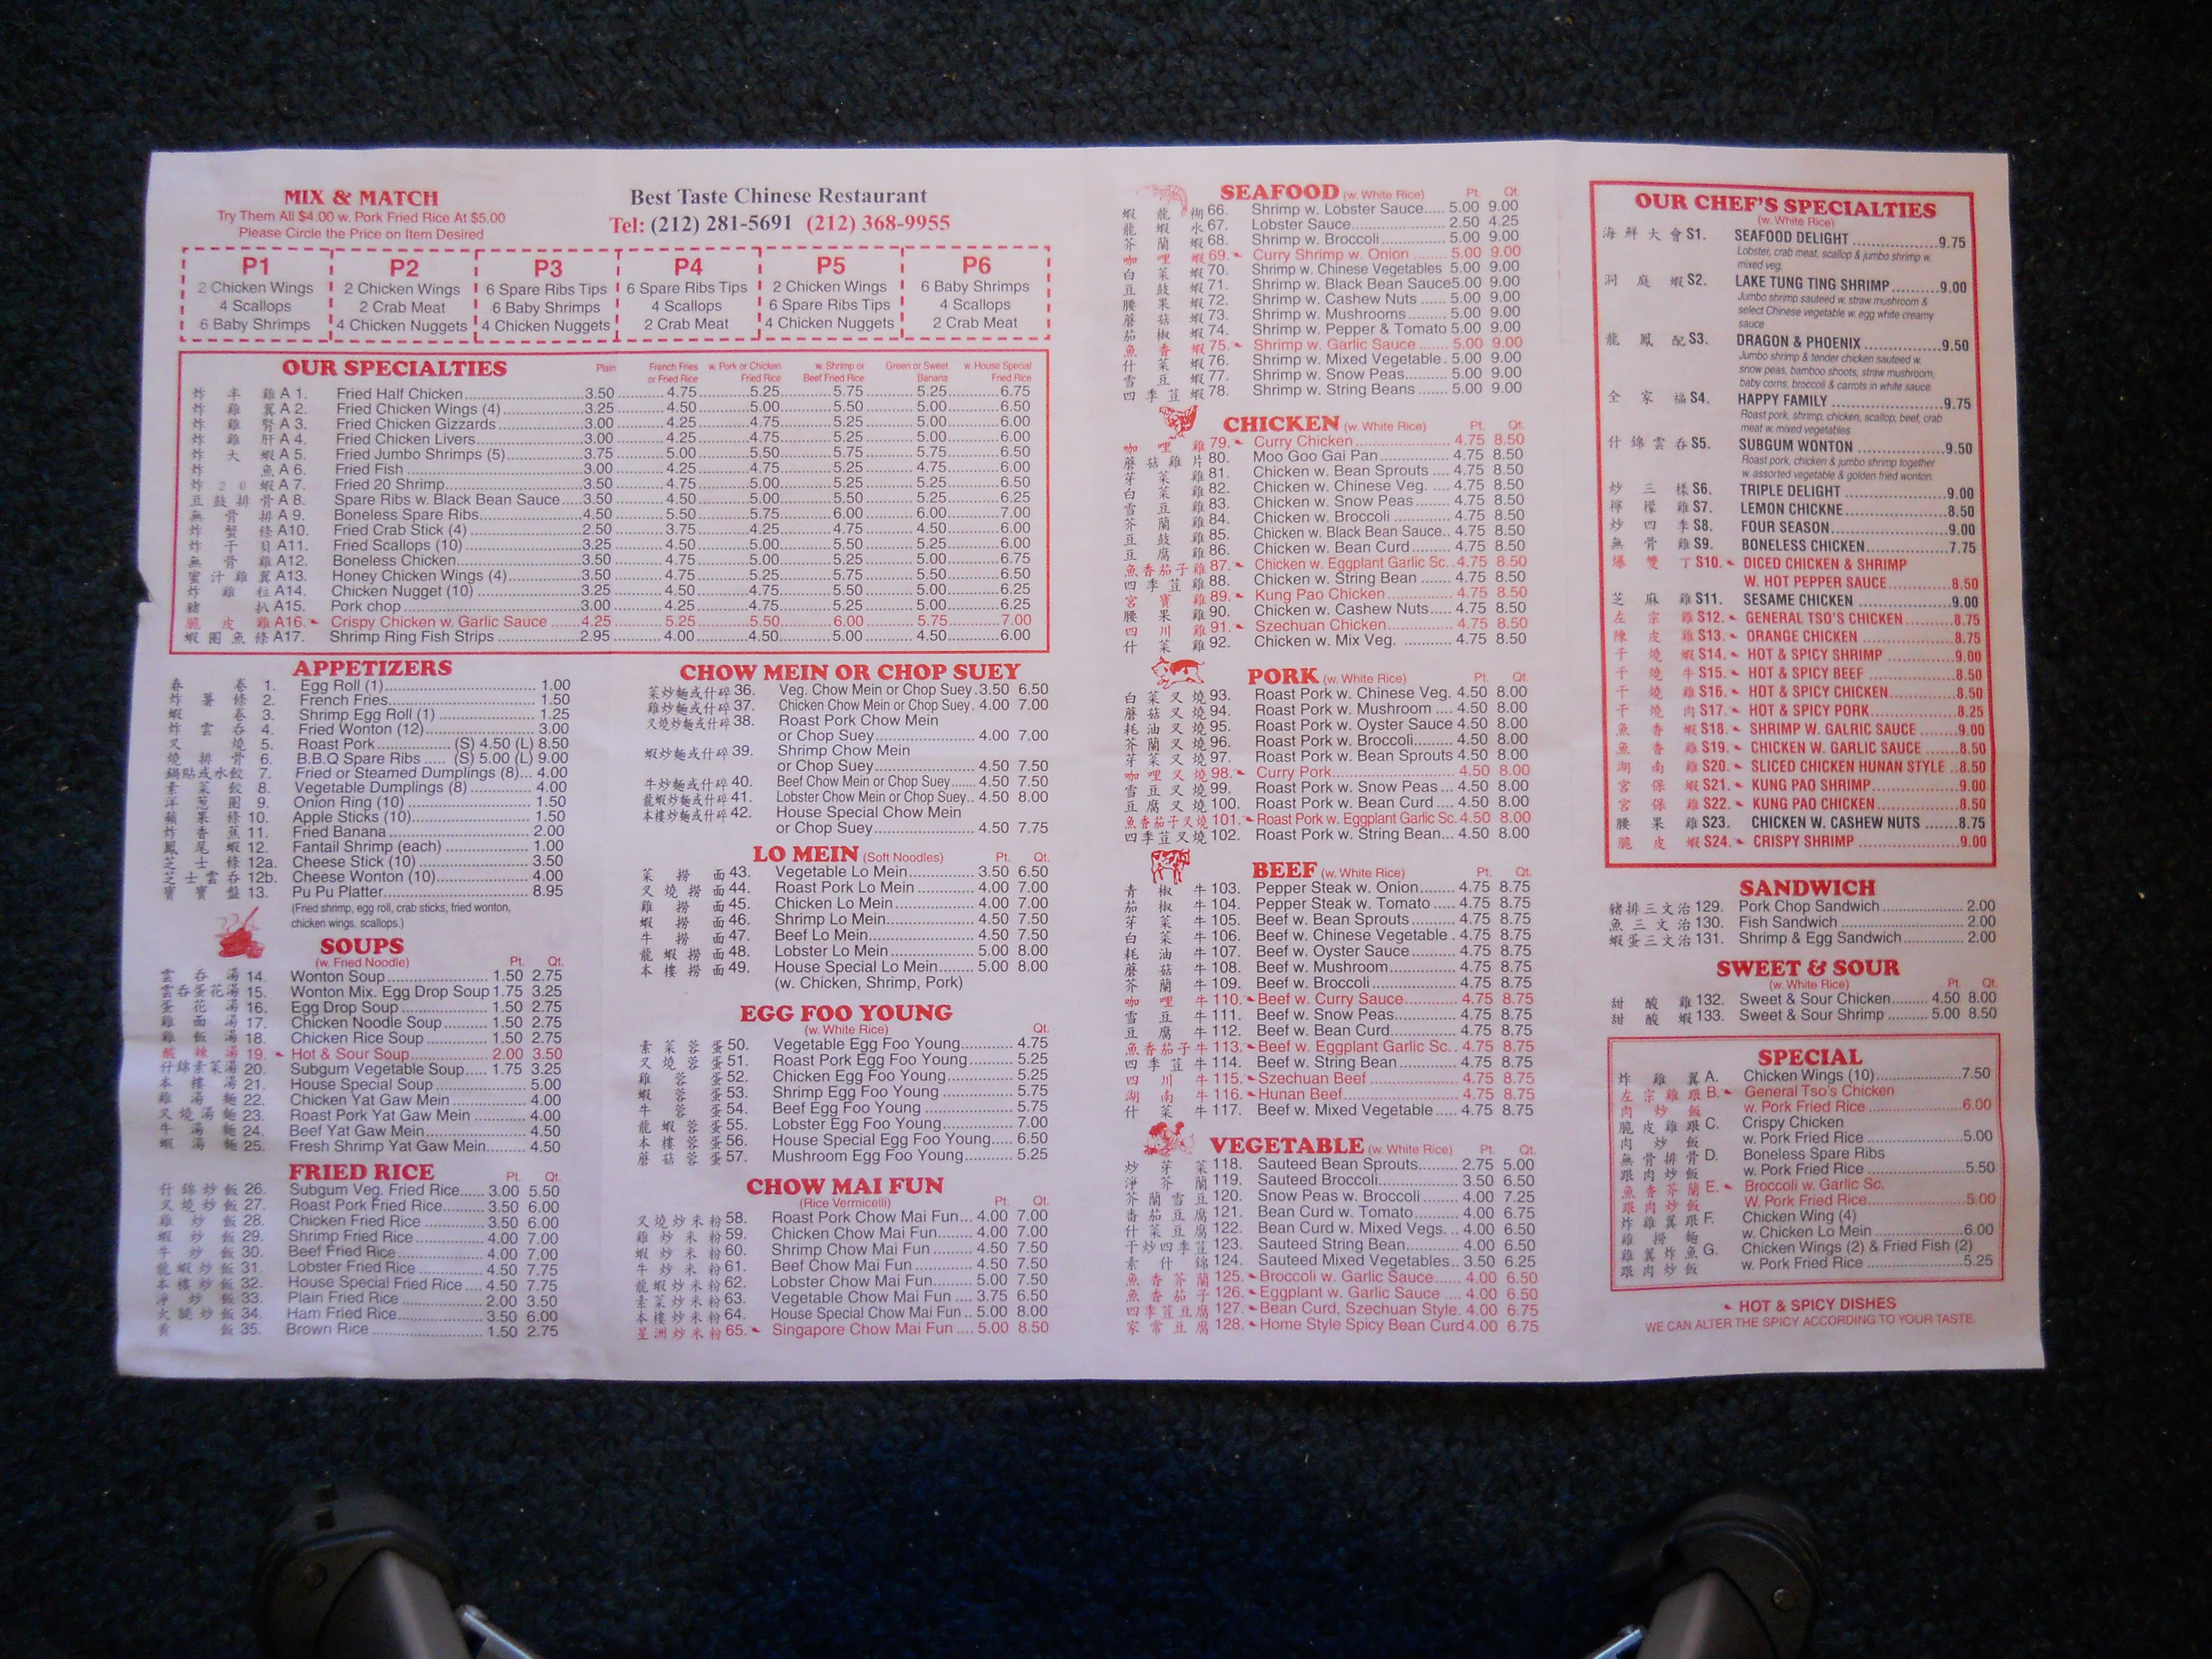 MIX & MATCH
Try Them All $4.00 w. Pork Fried Rice At $5.00
Please Circle the Price on Item Desired
Best Taste Chinese Restaurant
Tel: (212) 281-5691 (212) 368-9955
P1
2 Chicken Wings
4 Scallops
6 Baby Shrimps
P2
2 Chicken Wings
2 Crab Meat
4 Chicken Nuggets
P3
6 Spare Ribs Tips
6 Baby Shrimps
4 Chicken Nuggets
P4
6 Spare Ribs Tips
4 Scallops
2 Crab Meat
P5
2 Chicken Wings
6 Spare Ribs Tips
4 Chicken Nuggets
P6
6 Baby Shrimps
4 Scallops
2 Crab Meat
OUR SPECIALTIES
Plain
French Fries or Fried Rice
w. Pork or Chicken Fried Rice
w. Shrimp or Beef Fried Rice
Green or Sweet Banana
w. House Special Fried Rice
炸半雞 A 1. Fried Half Chicken 3.50 4.75 5.25 5.75 5.25 6.75
炸雞翼 A 2. Fried Chicken Wings (4) 3.25 4.50 5.00 5.50 5.00 6.50
炸雞腎 A 3. Fried Chicken Gizzards 3.00 4.25 4.75 5.25 5.00 6.00
炸雞肝 A 4. Fried Chicken Livers 3.00 4.25 4.75 5.25 5.00 6.00
炸大蝦 A 5. Fried Jumbo Shrimps (5) 3.75 5.00 5.50 5.75 5.75 6.50
炸魚 A 6. Fried Fish 3.00 4.25 4.75 5.25 4.75 6.00
炸20蝦 A 7. Fried 20 Shrimp 3.50 4.75 5.00 5.50 5.00 6.25
豆鼓排骨 A 8. Spare Ribs w. Black Bean Sauce 3.50 4.50 5.00 5.50 5.25 6.25
無骨排 A 9. Boneless Spare Ribs 4.50 5.50 5.75 6.00 6.00 7.00
炸蟹條 A10. Fried Crab Stick (4) 2.50 3.75 4.25 4.75 4.50 6.00
炸干貝 A11. Fried Scallops (10) 3.25 4.50 5.00 5.50 5.25 6.00
無骨雞 A12. Boneless Chicken 3.50 4.75 5.00 5.25 5.00 6.75
蜜汁雞翼 A13. Honey Chicken Wings (4) 3.50 4.75 5.25 5.75 5.50 6.50
炸雞粒 A14. Chicken Nugget (10) 3.25 4.50 4.75 5.50 5.00 6.25
豬扒 A15. Pork chop 3.00 4.25 4.75 5.25 5.00 6.25
脆皮雞 A16. Crispy Chicken w. Garlic Sauce 4.25 5.25 5.50 6.00 5.75 7.00
蝦圈魚條 A17. Shrimp Ring Fish Strips 2.95 4.00 4.50 5.00 4.50 6.00
APPETIZERS
春卷 1. Egg Roll (1) 1.00
炸薯條 2. French Fries 1.50
蝦卷 3. Shrimp Egg Roll (1) 1.25
炸雲吞 4. Fried Wonton (12) 3.00
叉燒 5. Roast Pork (S) 4.50 (L) 8.50
燒排骨 6. B.B.Q Spare Ribs (S) 5.00 (L) 9.00
鍋貼或水餃 7. Fried or Steamed Dumplings (8) 4.00
素菜餃 8. Vegetable Dumplings (8) 4.00
洋蔥圈 9. Onion Ring (10) 1.50
蘋果條 10. Apple Sticks (10) 1.50
炸香蕉 11. Fried Banana 2.00
鳳尾蝦 12. Fantail Shrimp (each) 1.00
芝士條 12a. Cheese Stick (10) 3.50
芝士雲吞 12b. Cheese Wonton (10) 4.00
寶寶盤 13. Pu Pu Platter 8.95
(Fried shrimp, egg roll, crab sticks, fried wonton,
chicken wings, scallops.)
SOUPS
(w. Fried Noodle) Pt. Qt.
雲吞湯 14. Wonton Soup 1.50 2.75
雲吞蛋花湯 15. Wonton Mix. Egg Drop Soup 1.75 3.25
蛋花湯 16. Egg Drop Soup 1.50 2.75
雞面湯 17. Chicken Noodle Soup 1.50 2.75
雞飯湯 18. Chicken Rice Soup 1.50 2.75
酸辣湯 19. Hot & Sour Soup 2.00 3.50
什錦素菜湯 20. Subgum Vegetable Soup 1.75 3.25
本樓湯 21. House Special Soup 5.00
雞湯麵 22. Chicken Yat Gaw Mein 4.00
叉燒湯麵 23. Roast Pork Yat Gaw Mein 4.00
牛湯麵 24. Beef Yat Gaw Mein 4.50
蝦湯麵 25. Fresh Shrimp Yat Gaw Mein 4.50
FRIED RICE Pt. Qt.
什錦炒飯 26. Subgum Veg. Fried Rice 3.00 5.50
叉燒炒飯 27. Roast Pork Fried Rice 3.50 6.00
雞炒飯 28. Chicken Fried Rice 3.50 6.00
蝦炒飯 29. Shrimp Fried Rice 4.00 7.00
牛炒飯 30. Beef Fried Rice 4.00 7.00
龍蝦炒飯 31. Lobster Fried Rice 4.50 7.75
本樓炒飯 32. House Special Fried Rice 4.50 7.75
淨炒飯 33. Plain Fried Rice 2.00 3.50
火腿炒飯 34. Ham Fried Rice 3.50 6.00
黃飯 35. Brown Rice 1.50 2.75
CHOW MEIN OR CHOP SUEY
菜炒麵或什碎 36. Veg. Chow Mein or Chop Suey 3.50 6.50
雞炒麵或什碎 37. Chicken Chow Mein or Chop Suey 4.00 7.00
叉燒炒麵或什碎 38. Roast Pork Chow Mein
or Chop Suey 4.00 7.00
蝦炒麵或什碎 39. Shrimp Chow Mein
or Chop Suey 4.50 7.50
牛炒麵或什碎 40. Beef Chow Mein or Chop Suey 4.50 7.50
龍蝦炒麵或什碎 41. Lobster Chow Mein or Chop Suey 4.50 8.00
本樓炒麵或什碎 42. House Special Chow Mein
or Chop Suey 4.50 7.75
LO MEIN (Soft Noodles) Pt. Qt.
菜撈面 43. Vegetable Lo Mein 3.50 6.50
叉燒撈面 44. Roast Pork Lo Mein 4.00 7.00
雞撈面 45. Chicken Lo Mein 4.00 7.00
蝦撈面 46. Shrimp Lo Mein 4.50 7.50
牛撈面 47. Beef Lo Mein 4.50 7.50
龍蝦撈面 48. Lobster Lo Mein 5.00 8.00
本樓撈面 49. House Special Lo Mein 5.00 8.00
(w. Chicken, Shrimp, Pork)
EGG FOO YOUNG
(w. White Rice) Qt.
素菜蓉蛋 50. Vegetable Egg Foo Young 4.75
叉燒蓉蛋 51. Roast Pork Egg Foo Young 5.25
雞蓉蛋 52. Chicken Egg Foo Young 5.25
蝦蓉蛋 53. Shrimp Egg Foo Young 5.75
牛蓉蛋 54. Beef Egg Foo Young 5.75
龍蝦蓉蛋 55. Lobster Egg Foo Young 7.00
本樓蓉蛋 56. House Special Egg Foo Young 6.50
蘑菇蓉蛋 57. Mushroom Egg Foo Young 5.25
CHOW MAI FUN
(Rice Vermicelli) Pt. Qt.
叉燒炒米粉 58. Roast Pork Chow Mai Fun 4.00 7.00
雞炒米粉 59. Chicken Chow Mai Fun 4.00 7.00
蝦炒米粉 60. Shrimp Chow Mai Fun 4.50 7.50
牛炒米粉 61. Beef Chow Mai Fun 4.50 7.50
龍蝦炒米粉 62. Lobster Chow Mai Fun 5.00 7.50
素菜炒米粉 63. Vegetable Chow Mai Fun 3.75 6.50
本樓炒米粉 64. House Special Chow Mai Fun 5.00 8.00
星洲炒米粉 65. Singapore Chow Mai Fun 5.00 8.50
SEAFOOD (w. White Rice) Pt. Qt.
蝦龍糊 66. Shrimp w. Lobster Sauce 5.00 9.00
龍蝦水 67. Lobster Sauce 2.50 4.25
芥蘭蝦 68. Shrimp w. Broccoli 5.00 9.00
咖哩蝦 69. Curry Shrimp w. Onion 5.00 9.00
白菜蝦 70. Shrimp w. Chinese Vegetables 5.00 9.00
豆鼓蝦 71. Shrimp w. Black Bean Sauce 5.00 9.00
腰果蝦 72. Shrimp w. Cashew Nuts 5.00 9.00
蘑菇蝦 73. Shrimp w. Mushrooms 5.00 9.00
茄椒蝦 74. Shrimp w. Pepper & Tomato 5.00 9.00
魚香蝦 75. Shrimp w. Garlic Sauce 5.00 9.00
什菜蝦 76. Shrimp w. Mixed Vegetable 5.00 9.00
雪豆蝦 77. Shrimp w. Snow Peas 5.00 9.00
四季荳蝦 78. Shrimp w. String Beans 5.00 9.00
CHICKEN (w. White Rice) Pt. Qt.
咖哩雞 79. Curry Chicken 4.75 8.50
蘑菇雞片 80. Moo Goo Gai Pan 4.75 8.50
芽菜雞 81. Chicken w. Bean Sprouts 4.75 8.50
白菜雞 82. Chicken w. Chinese Veg. 4.75 8.50
雪豆雞 83. Chicken w. Snow Peas 4.75 8.50
芥蘭雞 84. Chicken w. Broccoli 4.75 8.50
豆鼓雞 85. Chicken w. Black Bean Sauce 4.75 8.50
豆腐雞 86. Chicken w. Bean Curd 4.75 8.50
魚香茄子雞 87. Chicken w. Eggplant Garlic Sc. 4.75 8.50
四季荳雞 88. Chicken w. String Bean 4.75 8.50
宮寶雞 89. Kung Pao Chicken 4.75 8.50
腰果雞 90. Chicken w. Cashew Nuts 4.75 8.50
四川雞 91. Szechuan Chicken 4.75 8.50
什菜雞 92. Chicken w. Mix Veg. 4.75 8.50
PORK (w. White Rice) Pt. Qt.
白菜叉燒 93. Roast Pork w. Chinese Veg. 4.50 8.00
蘑菇叉燒 94. Roast Pork w. Mushroom 4.50 8.00
耗油叉燒 95. Roast Pork w. Oyster Sauce 4.50 8.00
芥蘭叉燒 96. Roast Pork w. Broccoli 4.50 8.00
芽菜叉燒 97. Roast Pork w. Bean Sprouts 4.50 8.00
咖哩叉燒 98. Curry Pork 4.50 8.00
雪豆叉燒 99. Roast Pork w. Snow Peas 4.50 8.00
豆腐叉燒 100. Roast Pork w. Bean Curd 4.50 8.00
魚香茄子叉燒 101. Roast Pork w. Eggplant Garlic Sc. 4.50 8.00
四季荳叉燒 102. Roast Pork w. String Bean 4.50 8.00
BEEF (w. White Rice) Pt. Qt.
青椒牛 103. Pepper Steak w. Onion 4.75 8.75
茄椒牛 104. Pepper Steak w. Tomato 4.75 8.75
芽菜牛 105. Beef w. Bean Sprouts 4.75 8.75
白菜牛 106. Beef w. Chinese Vegetable 4.75 8.75
耗油牛 107. Beef w. Oyster Sauce 4.75 8.75
蘑菇牛 108. Beef w. Mushroom 4.75 8.75
芥蘭牛 109. Beef w. Broccoli 4.75 8.75
咖哩牛 110. Beef w. Curry Sauce 4.75 8.75
雪豆牛 111. Beef w. Snow Peas 4.75 8.75
豆腐牛 112. Beef w. Bean Curd 4.75 8.75
魚香茄子牛 113. Beef w. Eggplant Garlic Sc. 4.75 8.75
四季荳牛 114. Beef w. String Bean 4.75 8.75
四川牛 115. Szechuan Beef 4.75 8.75
湖南牛 116. Hunan Beef 4.75 8.75
什菜牛 117. Beef w. Mixed Vegetable 4.75 8.75
VEGETABLE (w. White Rice) Pt. Qt.
炒芽菜 118. Sauteed Bean Sprouts 2.75 5.00
淨芥蘭 119. Sauteed Broccoli 3.50 6.50
芥蘭雪豆 120. Snow Peas w. Broccoli 4.00 7.25
番茄豆腐 121. Bean Curd w. Tomato 4.00 6.75
什菜豆腐 122. Bean Curd w. Mixed Vegs. 4.00 6.50
干炒四季荳 123. Sauteed String Bean 4.00 6.50
素什錦 124. Sauteed Mixed Vegetables 3.50 6.25
魚香芥蘭 125. Broccoli w. Garlic Sauce 4.00 6.50
魚香茄子 126. Eggplant w. Garlic Sauce 4.00 6.50
四季荳豆腐 127. Bean Curd, Szechuan Style 4.00 6.75
家常豆腐 128. Home Style Spicy Bean Curd 4.00 6.75
OUR CHEF'S SPECIALTIES
(w. White Rice)
海鮮大會 S1. SEAFOOD DELIGHT 9.75
Lobster, crab meat, scallop & jumbo shrimp w.
mixed veg.
洞庭蝦 S2. LAKE TUNG TING SHRIMP 9.00
Jumbo shrimp sauteed w. straw mushroom &
select Chinese vegetable w. egg white creamy
sauce
龍鳳配 S3. DRAGON & PHOENIX 9.50
Jumbo shrimp & tender chicken sauteed w.
snow peas, bamboo shoots, straw mushroom,
baby corns, broccoli & carrots in white sauce.
全家福 S4. HAPPY FAMILY 9.75
Roast pork, shrimp, chicken, scallop, beef, crab
meat w. mixed vegetables
什錦雲吞 S5. SUBGUM WONTON 9.50
Roast pork, chicken & jumbo shrimp together
w. assorted vegetable & golden fried wonton.
炒三樣 S6. TRIPLE DELIGHT 9.00
檸檬雞 S7. LEMON CHICKNE 8.50
炒四季 S8. FOUR SEASON 9.00
無骨雞 S9. BONELESS CHICKEN 7.75
爆雙丁 S10. DICED CHICKEN & SHRIMP
W. HOT PEPPER SAUCE 8.50
芝麻雞 S11. SESAME CHICKEN 9.00
左宗雞 S12. GENERAL TSO'S CHICKEN 8.75
陳皮雞 S13. ORANGE CHICKEN 8.75
干燒蝦 S14. HOT & SPICY SHRIMP 9.00
干燒牛 S15. HOT & SPICY BEEF 8.50
干燒雞 S16. HOT & SPICY CHICKEN 8.50
干燒肉 S17. HOT & SPICY PORK 8.25
魚香蝦 S18. SHRIMP W. GALRIC SAUCE 9.00
魚香雞 S19. CHICKEN W. GARLIC SAUCE 8.50
湖南雞 S20. SLICED CHICKEN HUNAN STYLE 8.50
宮保蝦 S21. KUNG PAO SHRIMP 9.00
宮保雞 S22. KUNG PAO CHICKEN 8.50
腰果雞 S23. CHICKEN W. CASHEW NUTS 8.75
脆皮蝦 S24. CRISPY SHRIMP 9.00
SANDWICH
豬排三文治 129. Pork Chop Sandwich 2.00
魚三文治 130. Fish Sandwich 2.00
蝦蛋三文治 131. Shrimp & Egg Sandwich 2.00
SWEET & SOUR
(w. White Rice) Pt. Qt.
甜酸雞 132. Sweet & Sour Chicken 4.50 8.00
甜酸蝦 133. Sweet & Sour Shrimp 5.00 8.50
SPECIAL
炸雞翼 A. Chicken Wings (10) 7.50
左宗雞跟 B. General Tso's Chicken
肉炒飯 w. Pork Fried Rice 6.00
脆皮雞跟 C. Crispy Chicken
肉炒飯 w. Pork Fried Rice 5.00
無骨排骨 D. Boneless Spare Ribs
跟肉炒飯 w. Pork Fried Rice 5.50
魚香芥蘭 E. Broccoli w. Garlic Sc.
跟肉炒飯 W. Pork Fried Rice 5.00
炸雞翼跟 F. Chicken Wing (4)
雞撈麵 w. Chicken Lo Mein 6.00
雞翼炸魚 G. Chicken Wings (2) & Fried Fish (2)
跟肉炒飯 w. Pork Fried Rice 5.25
HOT & SPICY DISHES
WE CAN ALTER THE SPICY ACCORDING TO YOUR TASTE.